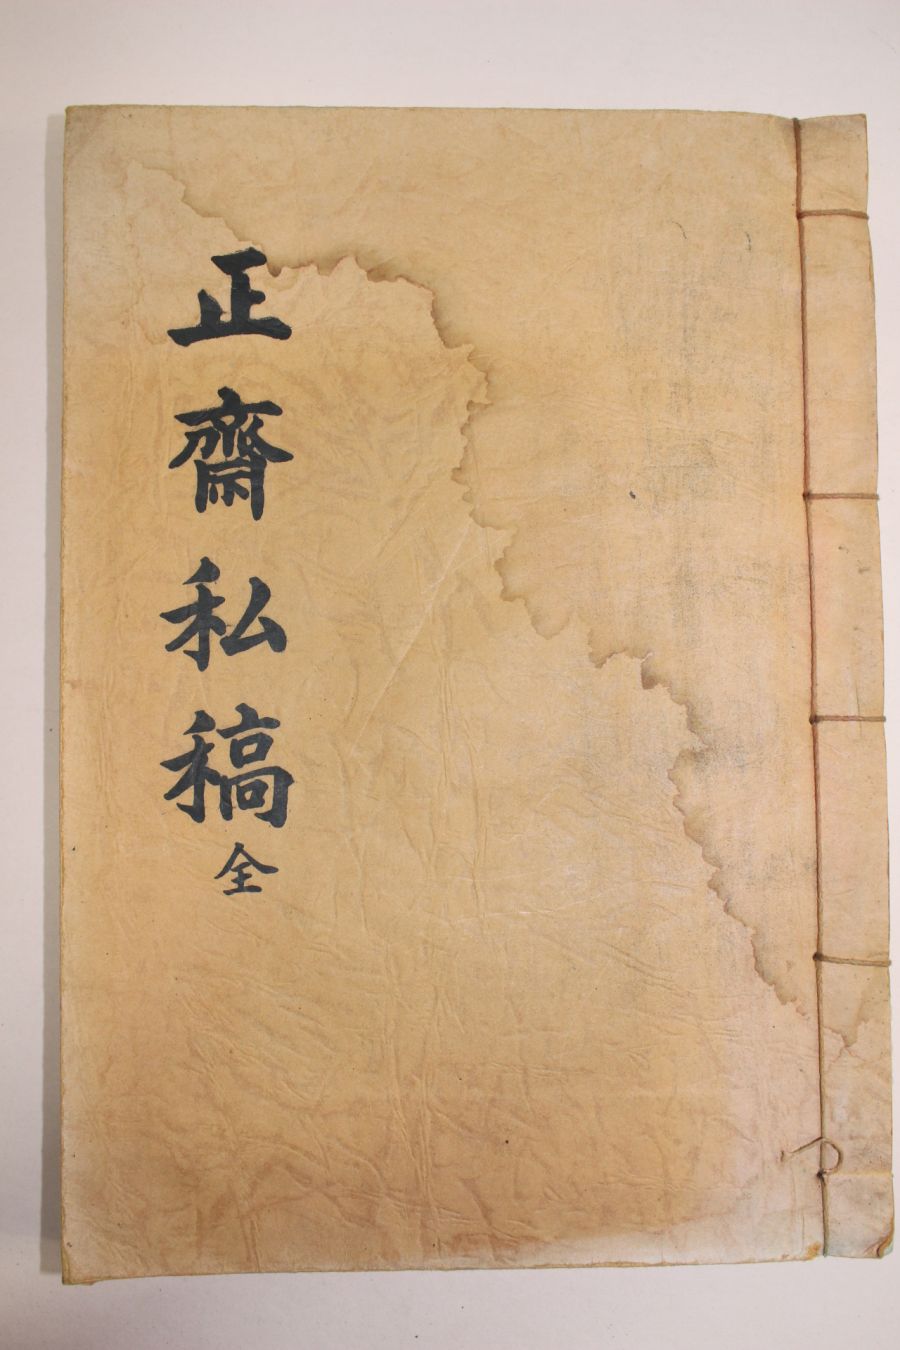 正齋私稿全